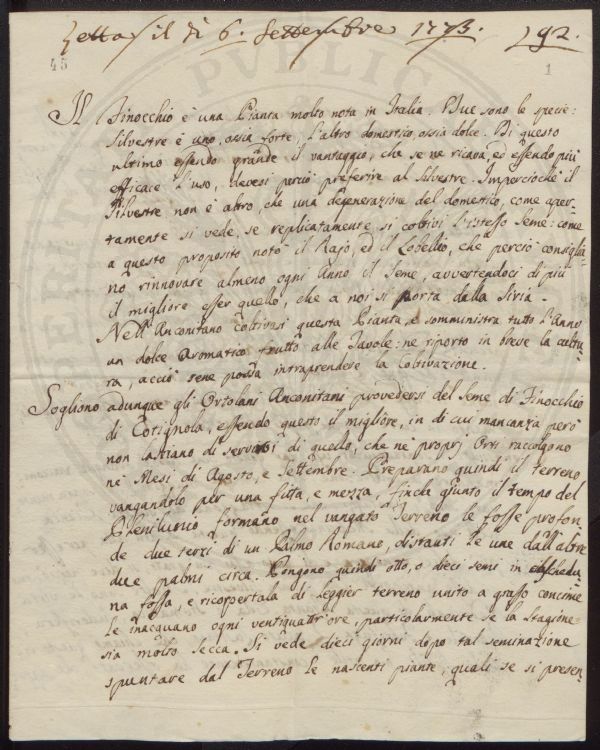 Letta il dì 6. Settembre 1773. 192.
45 1
Il Finocchio è una Pianta molto nota in Italia. Due sono le specie:
Silvestre è uno, ossia forte, l'altro domestico, ossia dolce. Di questo
ultimo essendo grande il vantaggio, che se ne ricava, ed essendo più
efficace l'uso, devesi perciò preferire al Silvestre. Imperciochè il
Silvestre non è altro, che una degenerazione del domestico, come aper-
tamente si vede, se replicatamente si coltivi l'istesso seme: come
a questo proposito notò il Rajo, ed il Lobellio, che perciò consiglia-
no rinnovare almeno ogni Anno il seme, avvertendoci di più
il migliore esser quello, che a noi si porta dalla Siria.
Nell'Anconitano coltivasi questa Pianta, e somministra tutto l'Anno
un dolce Aromatico frutto alle Tavole: ne riporto in breve la cultu-
ra, acciò sene possa intraprendere la Coltivazione.
Sogliono adunque gli Ortolani Anconitani provedersi del Seme di Finocchio
di Cotignola, essendo questo il migliore, in di cui mancanza però
non lasciano di servirsi di quello, che ne proprj Orti raccolgono
ne' Mesi di Agosto, e Settembre. Preparano quindi il terreno
vangandolo per una fitta, e mezza, finchè giunto il tempo del
Plenilunio formano nel vangato Terreno le fosse profon-
de due terzi di un Palmo Romano, distanti le une dall'altre
due palmi circa. Pongono quindi otto, o dieci semi in ciascedu-
na fossa, e ricoppertala di leggier terreno unito a grasso concime
le inacquano ogni ventiquattr'ore, particolarmente se la stagione
sia molto secca. Si vede dieci giorni dopo tal seminazione
spuntare dal Terreno le nascenti piante, quali se si presen-